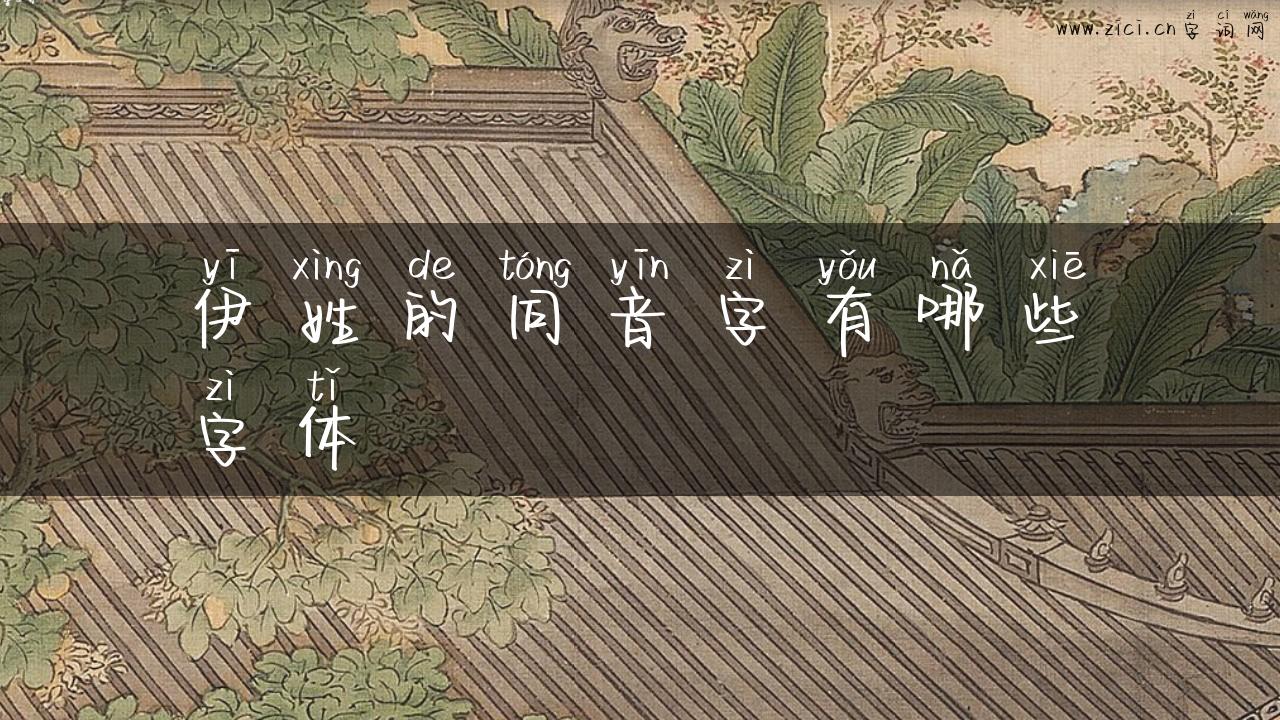 zì cí wǎng
www.zici.cn 字词网
yī xìng de tóng yīn zì yǒu nǎ xiē
伊姓的同音字有哪些
zì tǐ
字体